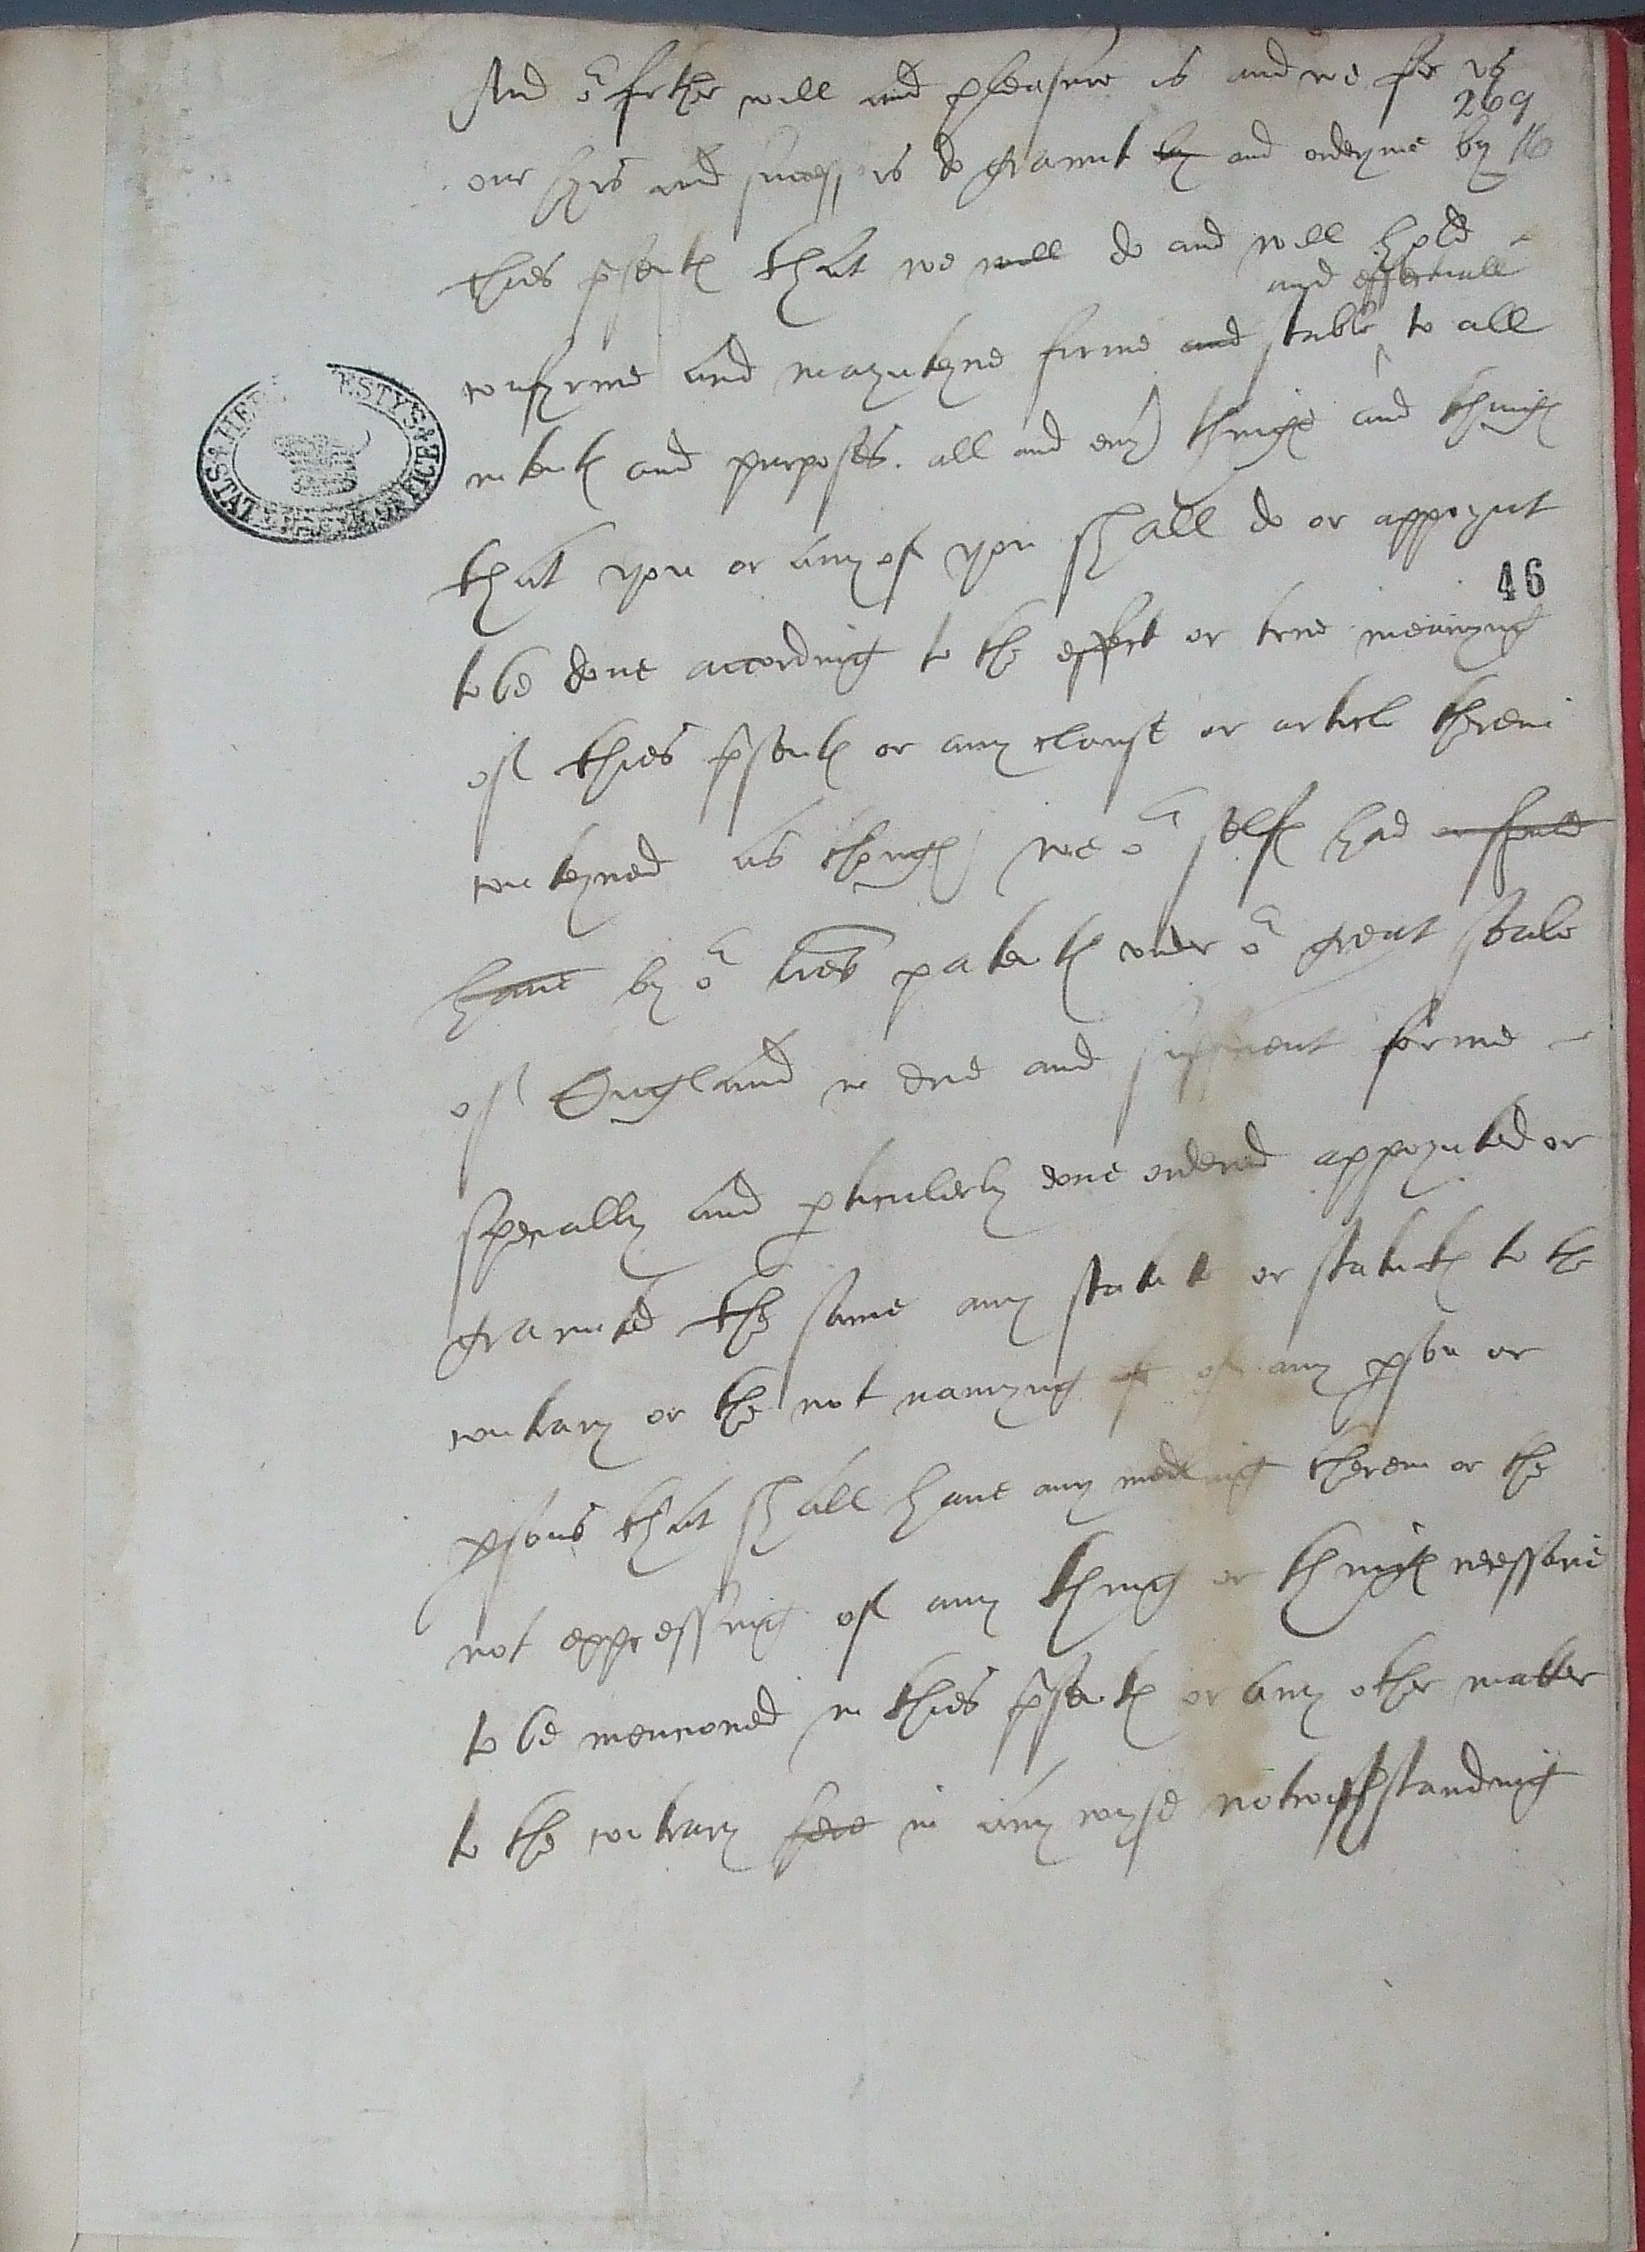 And or further will and pleasure is and we for us
269
our heyrs and successors do graunt by and ordeyne by
thies psents that we will do and will hold
and effectuall
confyrme and mayntayne firme and stable to all
intents and purposes all and evy thinge and things
that you or any of you shall do or appoynt
46
to be done according to the effect or true meanyng
of thies psents or any clause or article therein
conteyned as though we or self had or should
have by or tres patents under or great seale
of England in due and sufficient forme
specially and pticulerly done ordered appoynted or
graunted the same any statute or statuts to the
contrary or the not namyng of any pson or
psons that shall have any medling therein or the
not expressing of any thing or things necessarie
to be mencioned in thies psents or any other matter
to the contrary here in any wyse notwithstanding
HER MAJESTY'S STATE PAPER OFFICE